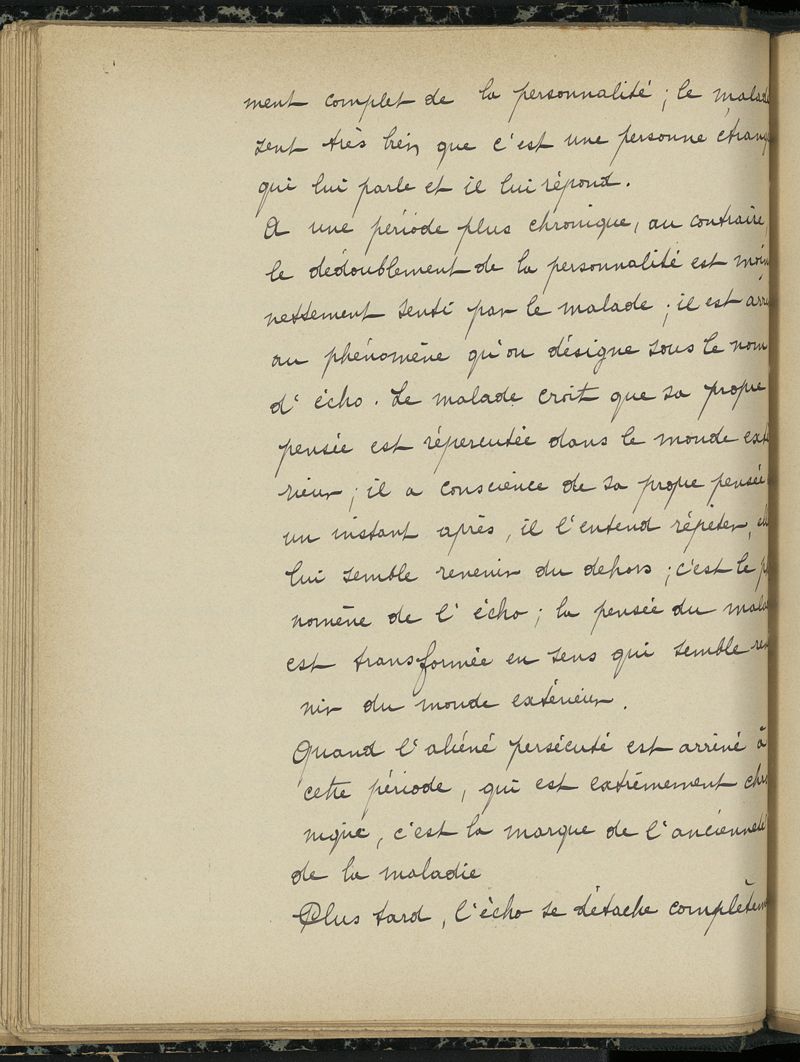 ment complet de la personnalité ; le malad
sent très bien que c'est une personne étrang
qui lui parle et il lui répond.
A une période plus chronique, au contraire,
le dédoublement de la personnalité est moin
nettement senti par le malade ; il est arri
au phénomène qu'on désigne sous le nom
d'écho. Le malade croit que sa propre
pensée est réperentée dans le monde exté
rieur ; il a conscience de sa propre pensée
un instant après, il l'entend répéter, el
lui semble revenir du dehors ; c'est le p
nomène de l'écho ; la pensée du mala
est transformée en sens qui semble rev
nir du monde extérieur.
Quand l'aliéné persécuté est arrivé à
cette période, qui est extrêmement chr
nique, c'est la marque de l'ancienneté
de la maladie
Plus tard, l'écho se détache complètem